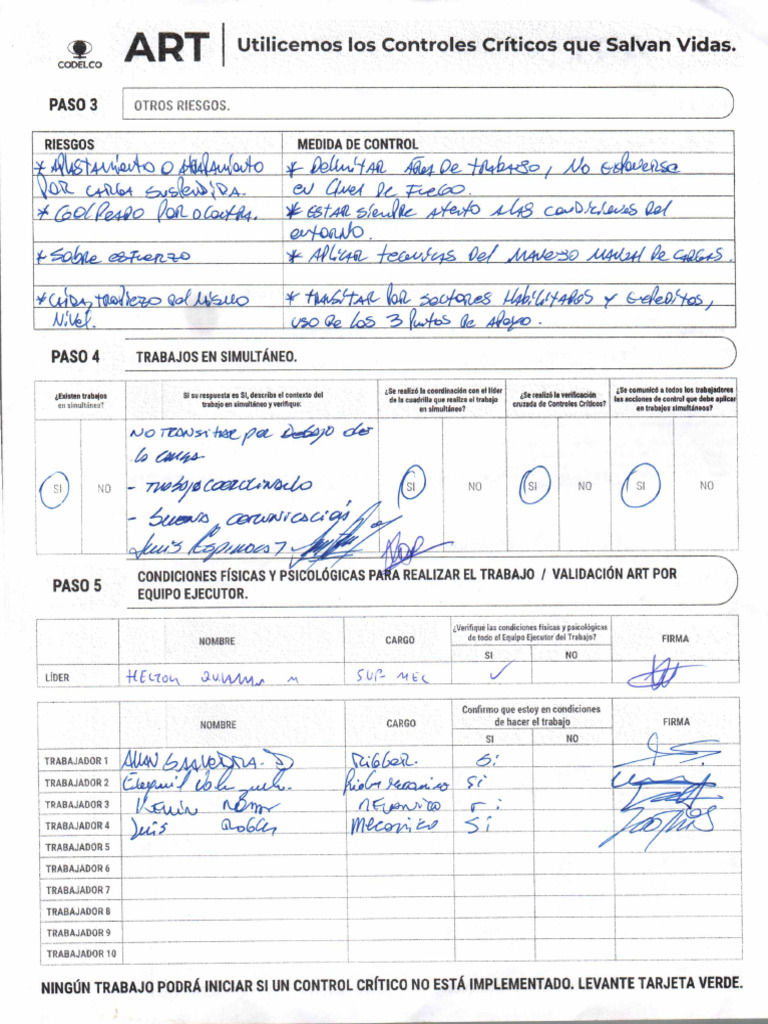 CODELCO
ART
Utilicemos los Controles Críticos que Salvan Vidas.
PASO 3
OTROS RIESGOS.
RIESGOS
MEDIDA DE CONTROL
* Aplastamiento o Atrapamiento
por carga suspendida.
* Delimitar área de trabajo, No exponerse
en línea de fuego.
* Golpeado por o contra.
* Estar siempre atento a las condiciones del
entorno.
* Sobre esfuerzo
* Aplicar tecnicas del manejo manual de cargas.
* Caída, tropiezo del mismo
Nivel.
* Transitar por sectores Habilitados y expeditos,
uso de los 3 puntos de apoyo.
PASO 4
TRABAJOS EN SIMULTÁNEO.
¿Existen trabajos
en simultáneo?
Si su respuesta es SI, describa el contexto del
trabajo en simultáneo y verifique:
¿Se realizó la coordinación con el líder
de la cuadrilla que realiza el trabajo
en simultáneo?
¿Se realizó la verificación
cruzada de Controles Críticos?
¿Se comunicó a todos los trabajadores
las acciones de control que debe aplicar
en trabajos simultáneos?
SI
NO
No transitar por debajo de
la carga
- trabajo coordinado
- buena comunicación
Luis Espinoza
SI
NO
SI
NO
SI
NO
PASO 5
CONDICIONES FÍSICAS Y PSICOLÓGICAS PARA REALIZAR EL TRABAJO / VALIDACIÓN ART POR
EQUIPO EJECUTOR.
NOMBRE
CARGO
¿Verifiqué las condiciones físicas y psicológicas
de todo el Equipo Ejecutor del Trabajo?
SI
NO
FIRMA
LÍDER
SUP MEC
NOMBRE
CARGO
Confirmo que estoy en condiciones
de hacer el trabajo
SI
NO
FIRMA
TRABAJADOR 1
Allan Saavedra
Rigger.
Si
TRABAJADOR 2
Si
TRABAJADOR 3
Kevin
Mecanico
Si
TRABAJADOR 4
Luis Robles
Mecanico
Si
TRABAJADOR 5
TRABAJADOR 6
TRABAJADOR 7
TRABAJADOR 8
TRABAJADOR 9
TRABAJADOR 10
NINGÚN TRABAJO PODRÁ INICIAR SI UN CONTROL CRÍTICO NO ESTÁ IMPLEMENTADO. LEVANTE TARJETA VERDE.